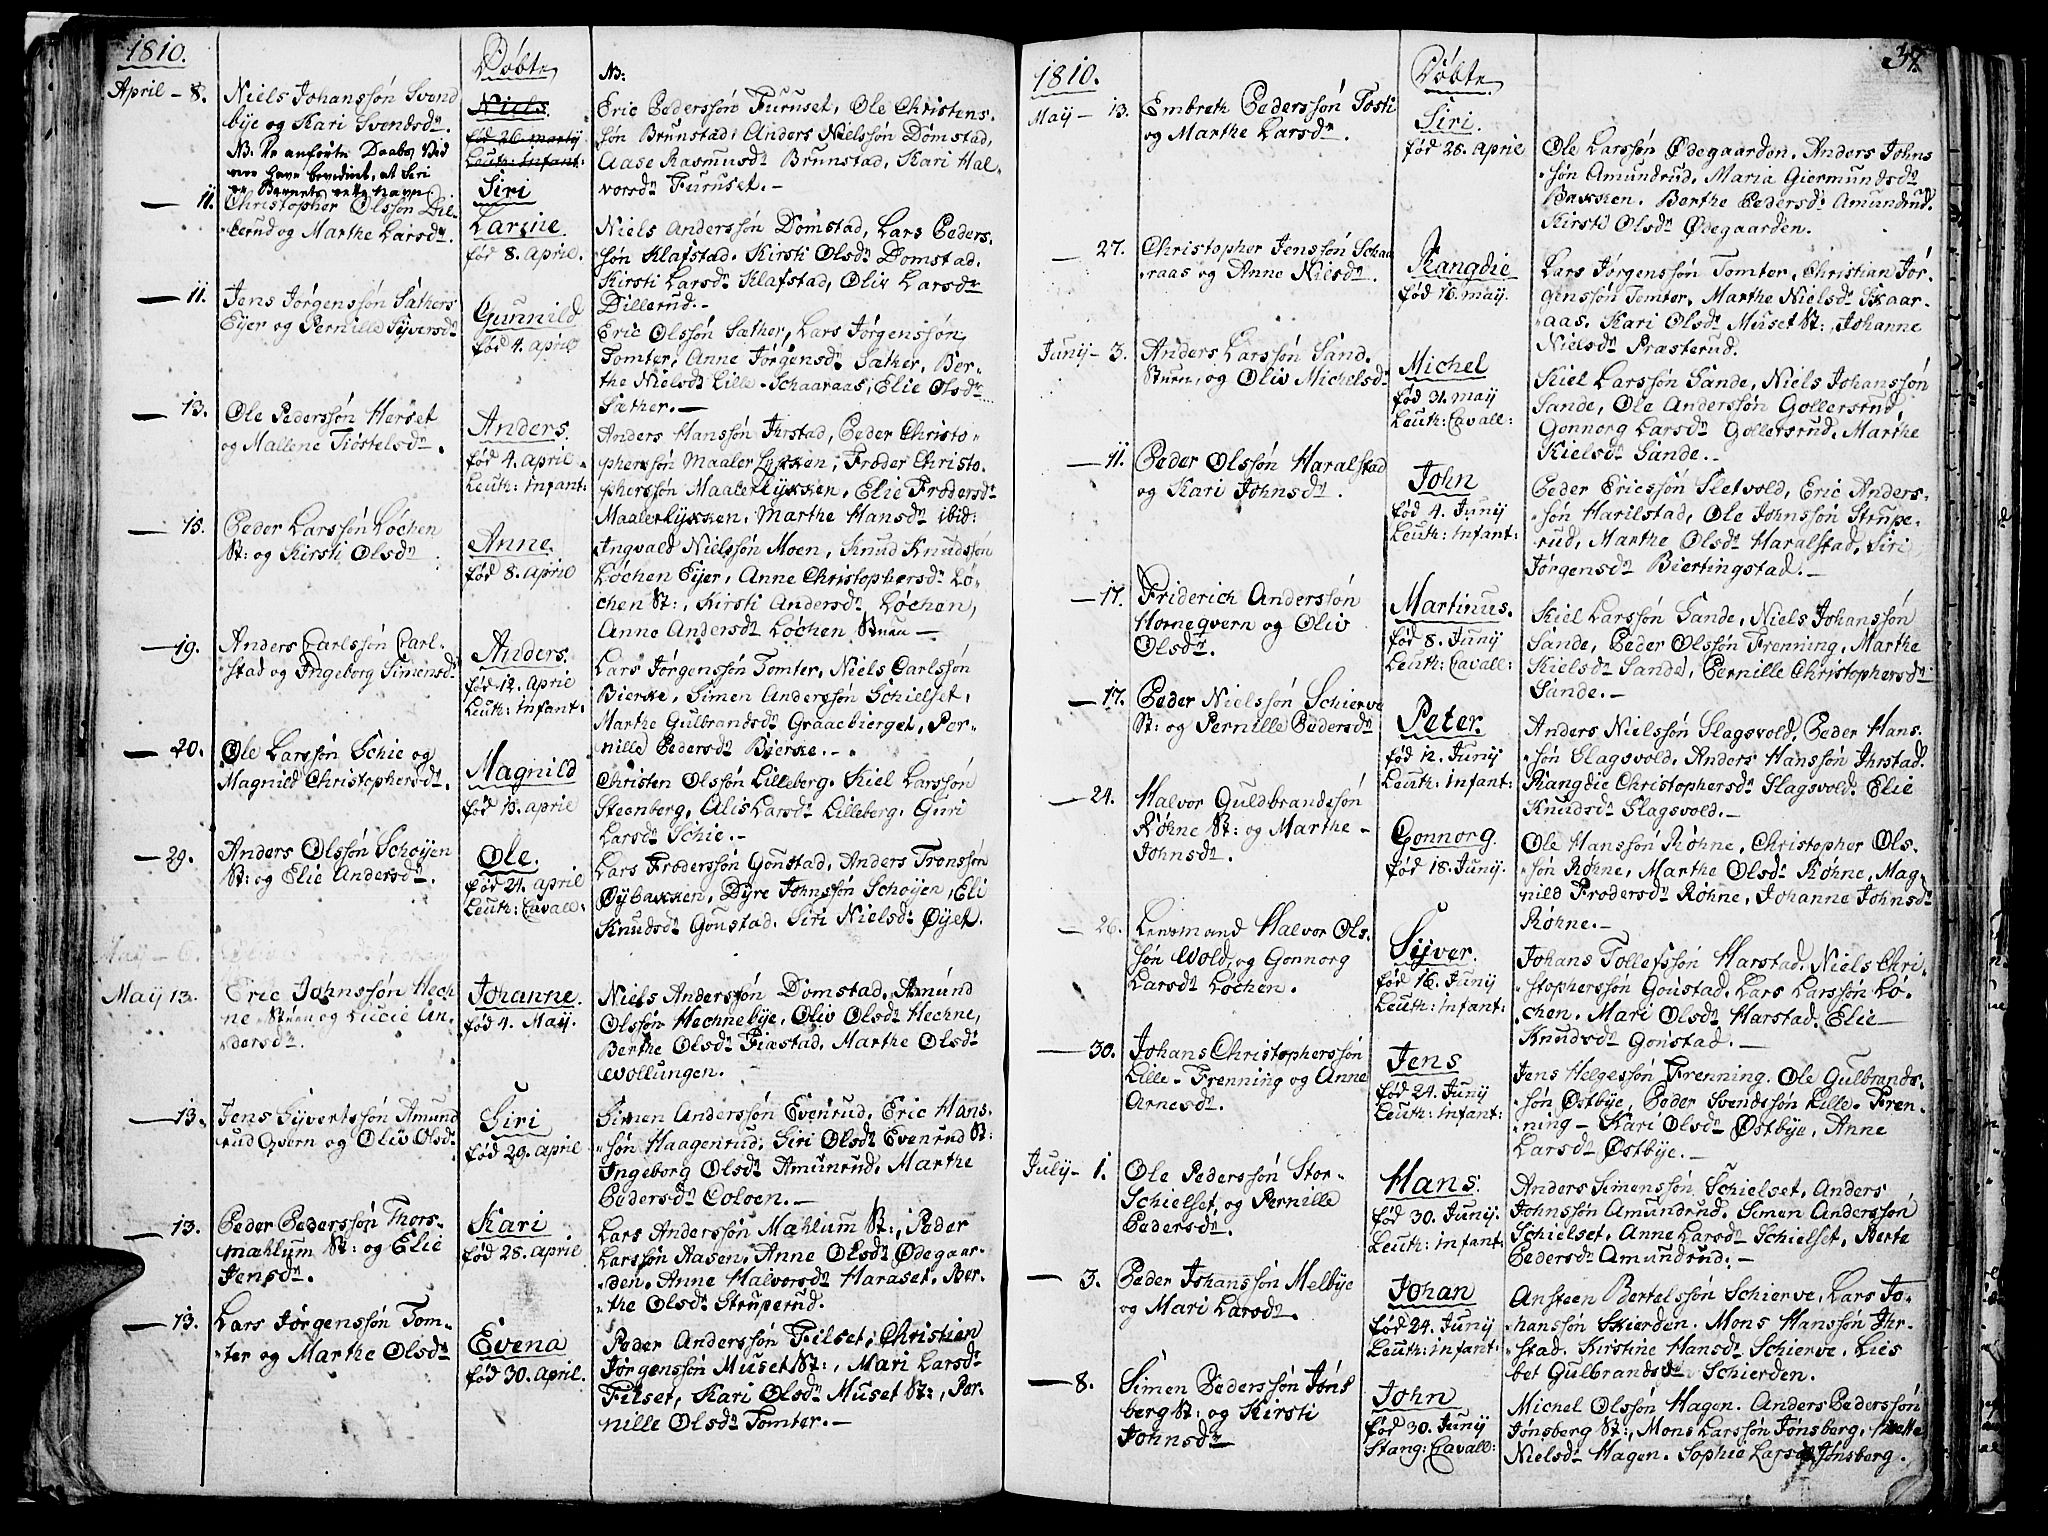 1810.
Døbte
N:
April - 8.
Niels Johanssøn Svend
bye og Kari Svendsdr.
N: De anførte Daabs Vid
ere have bevidnet, at Siri
er Barnets rette navn
Niels
fød 26. martij
Leuth: Infant:
Siri
Eric Pederssøn Furuset, Ole Christens-
søn Brunstad, Anders Nielssøn Domstad,
Aase Rasmusdr Brunstad, Kari Hal-
vorsdr Furuset. -
- 11.
Christopher Olssøn Dil-
lerud og Marthe Larsdr.
Larine
fød 8. April.
Niels Anderssøn Domstad, Lars Peders-
søn Klafstad. Kirsti Olsdr Domstad.
Kirsti Larsdr Klafstad, Oliv Larsdr
Dillerud. -
- 11.
Jens Jørgenssøn Sæthers
Eyer og Pernille Syversdr
Gunnild
fød 4. April
Eric Olssøn Sæther, Lars Jørgenssøn
Tomter, Anne Jørgensdr Sæther, Ber-
the Nielsdr Lille-Schaaraas, Elie Olsdr
Sæther. -
- 13.
Ole Pederssøn Herset
og Mallene Tiøstelsdr.
Anders.
fød 4. April.
Leuth: Infant:
Anders Hanssøn Ihrstad, Peder Christo-
pherssøn Maalerlykken, Froder Christo-
pherssøn Maalerlykken, Elie Frodersdr
Maalerlykken, Marthe Hansdr ibid:
- 15.
Peder Larssøn Løchen
St: og Kirsti Olsdr
Anne.
fød 8. April
Ingvald Nielssøn Moen, Knud Knudssøn
Løchen Eyer, Anne Christophersdr Lø-
chen St:, Kirsti Andersdr Løchen,
Anne Andersdr Løchen Stuen -
- 19.
Anders Carlssøn Carl-
stad og Ingeborg Simensdr
Anders.
fød 12. April
Leuth: Infant:
Lars Jørgenssøn Tomter, Niels Carlssøn
Bierke, Simen Anderssøn Schielset,
Marthe Gulbrandsdr Graaebierget, Per-
nille Pedersdr Bierke. -
- 20.
Ole Larssøn Schie og
Magnild Christophersdr.
Magnild
fød 15. April
Christen Olssøn Lilleberg. Kiel Larssøn
Steenberg, Alis Larsdr Lilleberg. Guri
Larsdr Schie. -
- 29.
Anders Olssøn Schøyen
St: og Elie Andersdr.
Ole.
fød 21. April
Leuth: Cavall:
Lars Froderssøn Gonstad, Anders Tronssøn
Øybakken, Dyre Johnssøn Schøyen, Eli
Knudsdr Gonstad. Siri Nielsdr Øyet.
May - 6.
May 13.
Eric Johnssøn Hech
ne Stuen og Luccie An-
dersdr.
Johanne.
fød 4. May.
Niels Anderssøn Domstad. Amund
Olssøn Hechnebye, Oliv Olsdr Hechne,
Berthe Olsdr Fiæstad. Marthe Olsdr
Wollungen.
- 13.
Jens Syvertssøn Amund
rud Qvern og Oliv Olsdr
Siri
fød 29. April
Simen Anderssøn Evenrud. Eric Hans-
søn Haagenrud. Siri Olsdr Evenrud St:
Ingeborg Olsdr Amunrud, Marthe
Pedersdr Coloen. -
- 13.
Peder Pederssøn Thors-
mæhlum St: og Elie
Jensdr.
Kari
fød 28. April
Lars Anderssøn Mæhlum St:, Peder
Larssøn Aasen, Anne Olsdr Ødegaar-
den. Anne Halvorsdr Haraset, Ber-
the Olsdr Struperud.
- 13.
Lars Jørgenssøn Tom-
ter og Marthe Olsdr
Evena
fød 30. April.
Peder Anderssøn Filset, Christian
Jørgenssøn Muset St:, Mari Larsdr
Filset, Kari Olsdr Muset St:, Per-
nille Olsdr Tomter. -
37
1810.
Døbte
May - 13.
Embreth Pederssøn Tosti
og Marthe Larsdr.
Siri.
fød 28. April
Ole Larssøn Ødegaarden. Anders Johns
søn Amundrud, Maria Giermundsdr
Bakken. Berthe Pedersdr Amundrud.
Kirsti Olsdr Ødegaarden.
- 27.
Christopher Jenssøn Schaa
raas og Anne Nielsdr.
Rangdie
fød 16. may.
Lars Jørgenssøn Tomter, Christian Jør-
genssøn Tomter, Marthe Nielsdr Skaar-
aas. Kari Olsdr Muset St:, Johanne
Nielsdr Præsterud.
Juny - 3.
Anders Larssøn Sand-
Stuen, og Oliv Michelsdr
Michel
fød 31. may
Leuth: Cavall:
Kiel Larssøn Sande, Niels Johanssøn
Sande, Ole Anderssøn Gollersrud,
Gonnorg Larsdr Gollersrud. Marthe
Kielsdr Sande. -
- 11.
Peder Olssøn Haralstad
og Kari Johnsdr.
John
fød 4. Juny
Leuth: Infant:
Peder Ericssøn Sletvold, Eric Anders-
søn Harilstad, Ole Johnssøn Strupe-
rud, Marthe Olsdr Haralstad, Siri
Jørgensdr Biertingstad. -
- 17.
Friderich Anderssøn
Horneqvern og Oliv
Olsdr.
Martinus.
fød 8. Juny
Leuth: Cavall:
Kiel Larssøn Sande, Niels Johanssøn
Sande, Peder Olssøn Frenning, Marthe
Kielsdr Sande, Pernille Christophersdr
Sande. -
- 17.
Peder Nielssøn Schierve
St: og Pernille Pedersdr
Peter.
fød 12. Juny
Leuth: Infant:
Anders Nielssøn Slagsvold, Peder Hans-
søn Slagsvold, Anders Hanssøn Ihrstad.
Rangdie Christophersdr Slagsvold. Elie
Knudsdr Slagsvold. -
- 24.
Halvor Guldbrandssøn
Røhne St: og Marthe
Johnsdr.
Gonnorg.
fød 18. Juny.
Ole Hanssøn Røhne, Christopher Ols-
søn Røhne, Marthe Olsdr Røhne, Mag-
nild Frodersdr Røhne, Johanne Johnsdr
Røhne. -
- 26.
Lensmand Halvor Ols-
søn Wold, og Gonnorg
Larsdr Løchen.
Syver.
fød 16. Juny
Leuth: Infant:
Johans Tollefssøn Harstad. Niels Chri-
stopherssøn Gonstad. Lars Larssøn Lø-
chen. Mari Olsdr Harstad. Elie
Knudsdr Gonstad. -
- 30.
Johans Christopherssøn
Lille-Frenning og Anne
Arnesdr.
Jens
fød 24. Juny
Leuth: Infant:
Jens Helgessøn Frenning. Ole Gulbrands-
søn Østbye, Peder Svendssøn Lille-Fren-
ning - Kari Olsdr Østbye, Anne
Larsdr Østbye. -
July - 1.
Ole Pederssøn Stor-
Schielset, og Pernille
Pedersdr.
Hans.
fød 30. Juny.
Leuth: Infant:
Anders Simenssøn Schielset, Anders
Johnssøn Amundrud. Simen Anderssøn
Schielset, Anne Larsdr Schielset, Berte
Pedersdr Amundrud. -
- 3.
Peder Johanssøn Melbye
og Mari Larsdr.
Johan
fød 24. Juny
Leuth: Infant:
Ansteen Bertelssøn Schierve, Lars Jo-
hanssøn Skierden. Mons Hanssøn Ihr-
stad. Kirstine Hansdr Schierve, Lies
bet Gulbrandsdr Schierden.
- 8.
Simen Pederssøn Jøns
berg St: og Kirsti
Johnsdr
John
fød 30. Juny
Stang: Cavall:
Michel Olssøn Hagen. Anders Pederssøn
Jønsberg St:, Mons Larssøn Jønsberg,
Nielsdr Hagen. Sophie Larsdr Jønsberg.